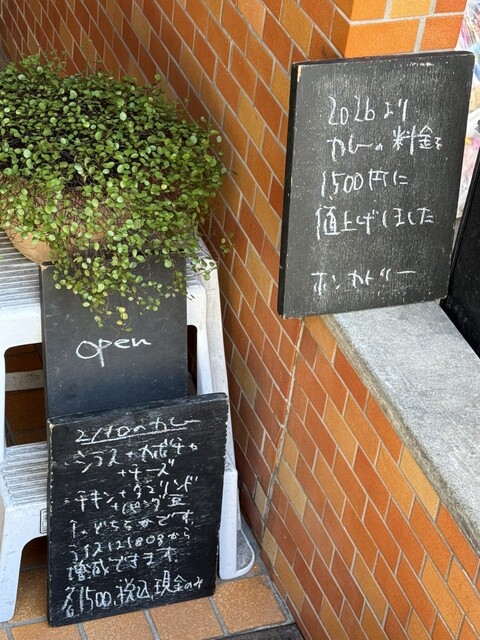 2026より
カレーの料金を
1500円に
値上げしました
open
2/10のカレー
・シラス+カボチャ
+チーズ
・チキン+タマリンド
豆
の、どちらかです。
ライスは180gから
増減できます
各1500、税込現金のみ